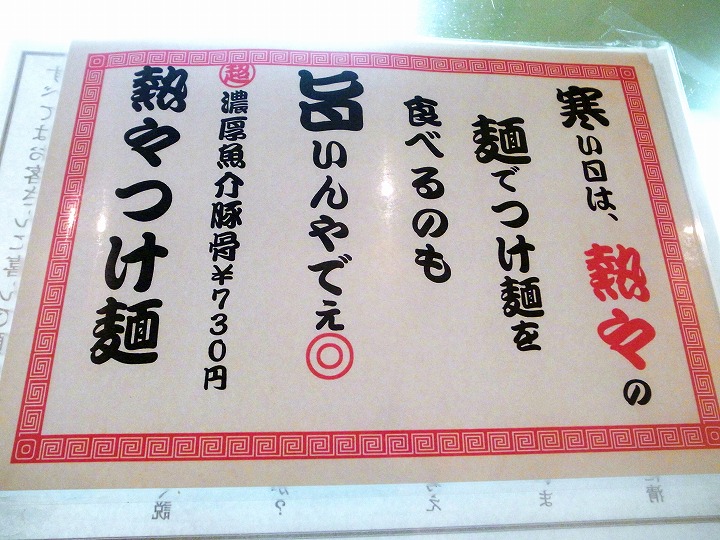 寒い日は、熱々の
麺でつけ麺を
食べるのも
旨いんやでぇ◎
超濃厚魚介豚骨¥730円
熱々つけ麺